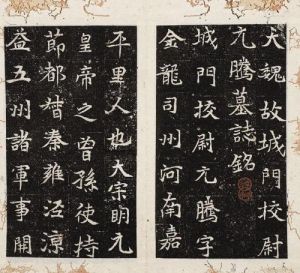 大魏故城門校尉
元騰墓誌銘
城門校尉元騰字
金龍司州河南嘉
平里人也大宗明元
皇帝之曾孫使持
節都督秦雍涇涼
益五州諸軍事開